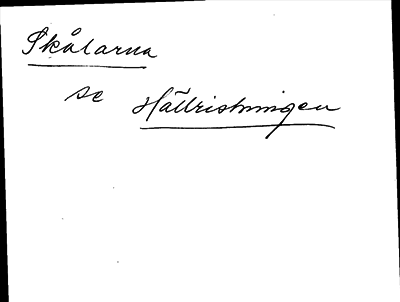 Skålarna
se Hällristningen